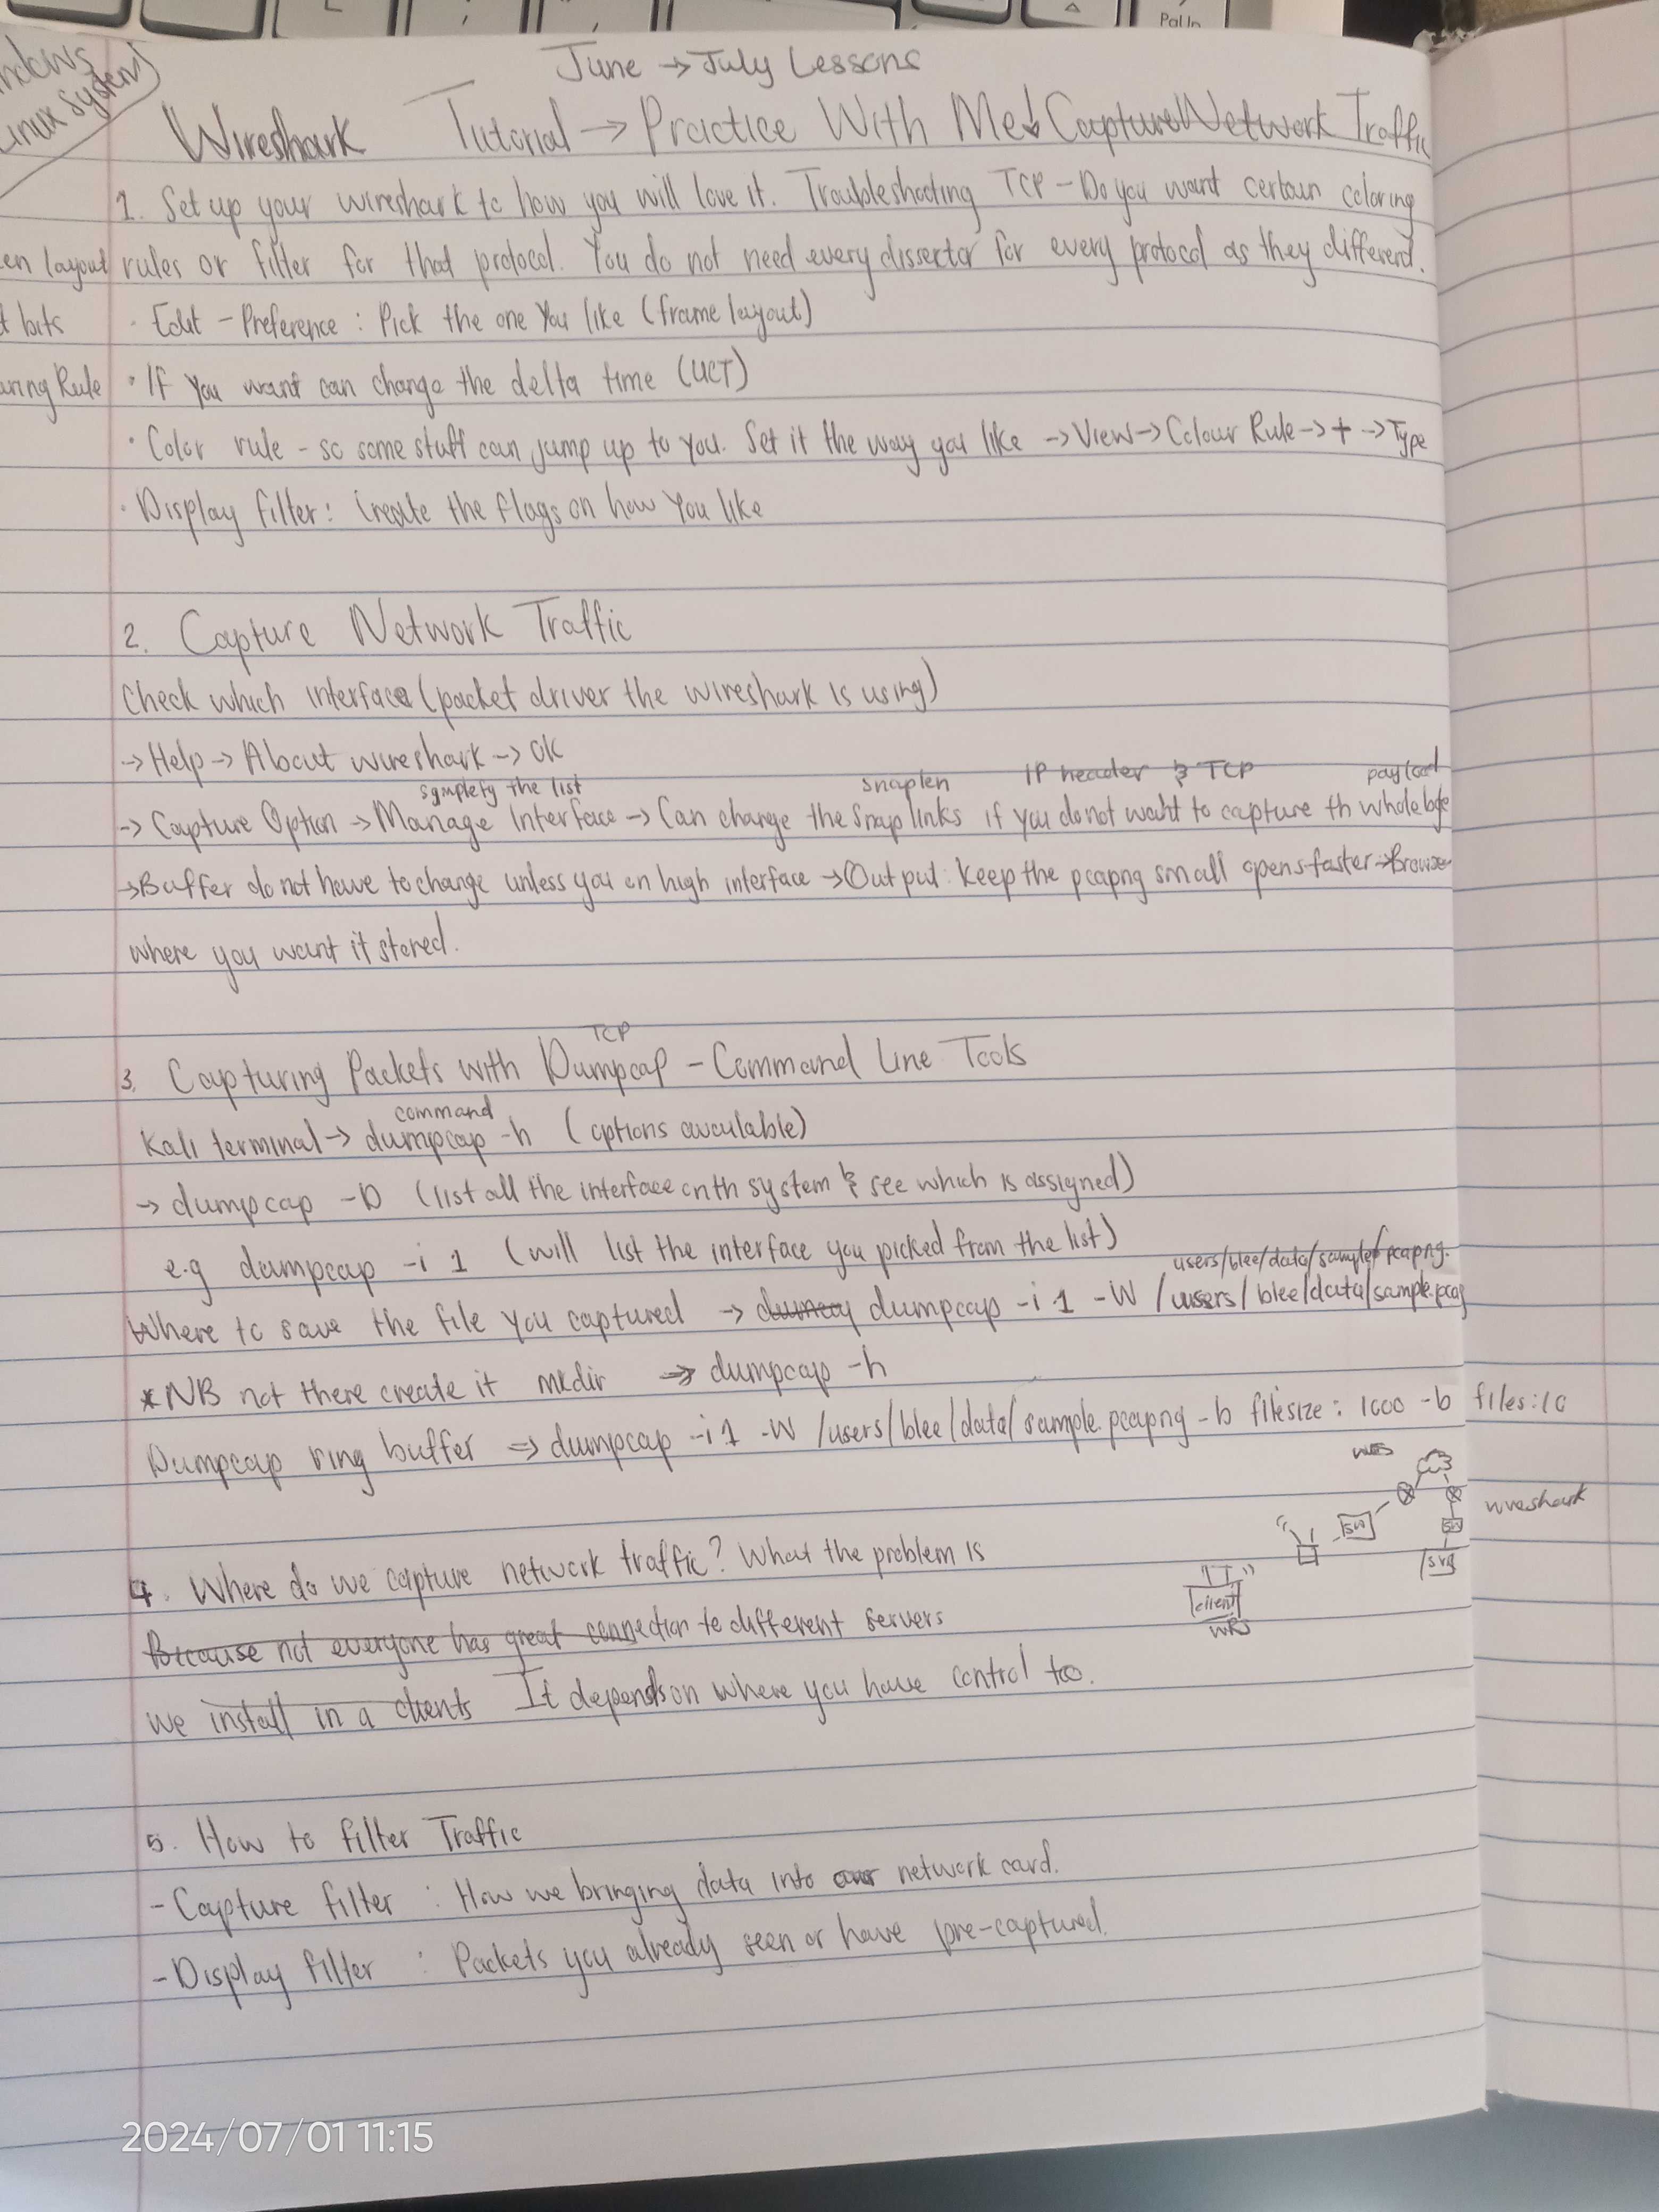 Pg Up
ndows
Linux System
June → July Lessons
Wireshark Tutorial → Practice With Me! Capture Network Traffic
1. Set up your wireshark to how you will love it. Troubleshooting TCP - Do you want certain coloring
en layout rules or filter for that protocol. You do not need every dissector for every protocol as they different.
t bits · Edit - Preference : Pick the one You like (frame layout)
uring Rule · If You want can change the delta time (UCT)
· Color rule - so some stuff can jump up to you. Set it the way you like → View → Colour Rule → + → Type
· Display filter : Create the flags on how You like
2. Capture Network Traffic
Check which interface (packet driver the wireshark is using)
→ Help → About wireshark → OK
the list snaplen IP header & TCP payload
→ Capture Option → Manage Interface → Can change the Snap links if you do not want to capture th whole
→ Buffer do not have to change unless you on high interface → Output : Keep the pcapng small opens faster → Browse
where you want it stored.
TCP
3. Capturing Packets with Dumpcap - Command Line Tools
command
Kali terminal → dumpcap -h (options available)
→ dumpcap -D (list all the interface on th system & see which is assigned)
e.g dumpcap -i 1 (will list the interface you picked from the list)
users/blee/data/sample pcapng.
Where to save the file You captured → dumpcap -i 1 -W /users/blee/data/sample.pcag
*NB not there create it mkdir ⇒ dumpcap -h
Dumpcap ring buffer ⇒ dumpcap -i 1 -W /users/blee/data/sample.pcapng -b filesize : 1000 -b files:10
wrs
wireshark
sw
sw
srv
client
wrs
4. Where do we capture network traffic? What the problem is
Because not everyone has great connection to different servers
we install in a clients It depends on where you have control too.
5. How to filter Traffic
- Capture filter : How we bringing data into our network card.
- Display filter : Packets you already seen or have pre-captured.
2024/07/01 11:15